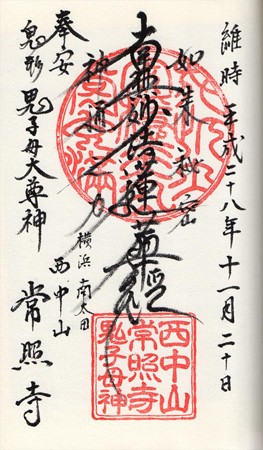 維時 平成二十八年十一月二十日
如来秘密
南無妙法蓮華経
神通之力
横浜 南太田
西中山
常照寺
奉安
鬼形 鬼子母大尊神
西中山
常照寺
鬼子母神